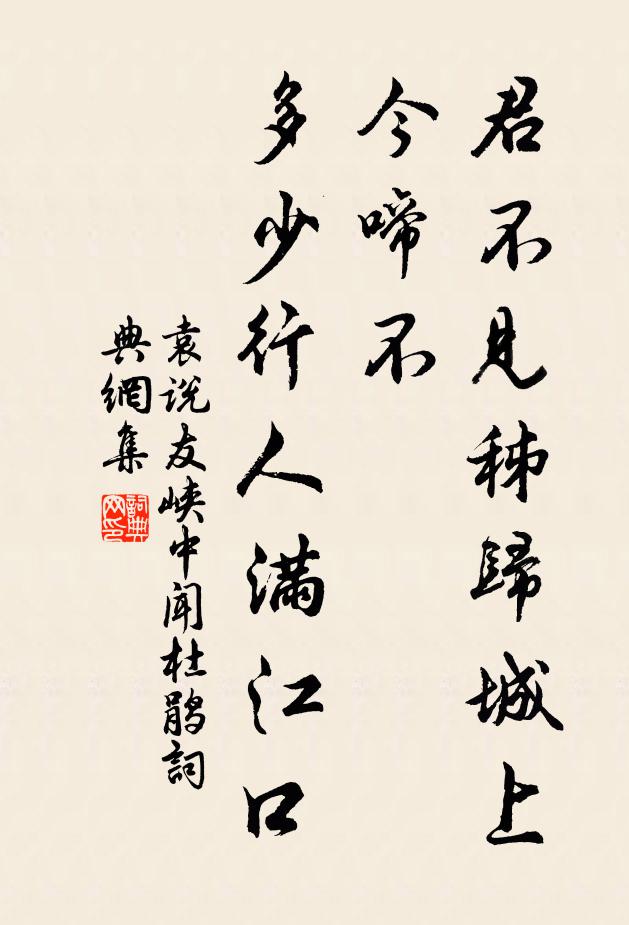 君不見秭歸城上
今啼不
多少行人滿江口
袁说友峡中闻杜鹃詞
典網集
詞典
网印